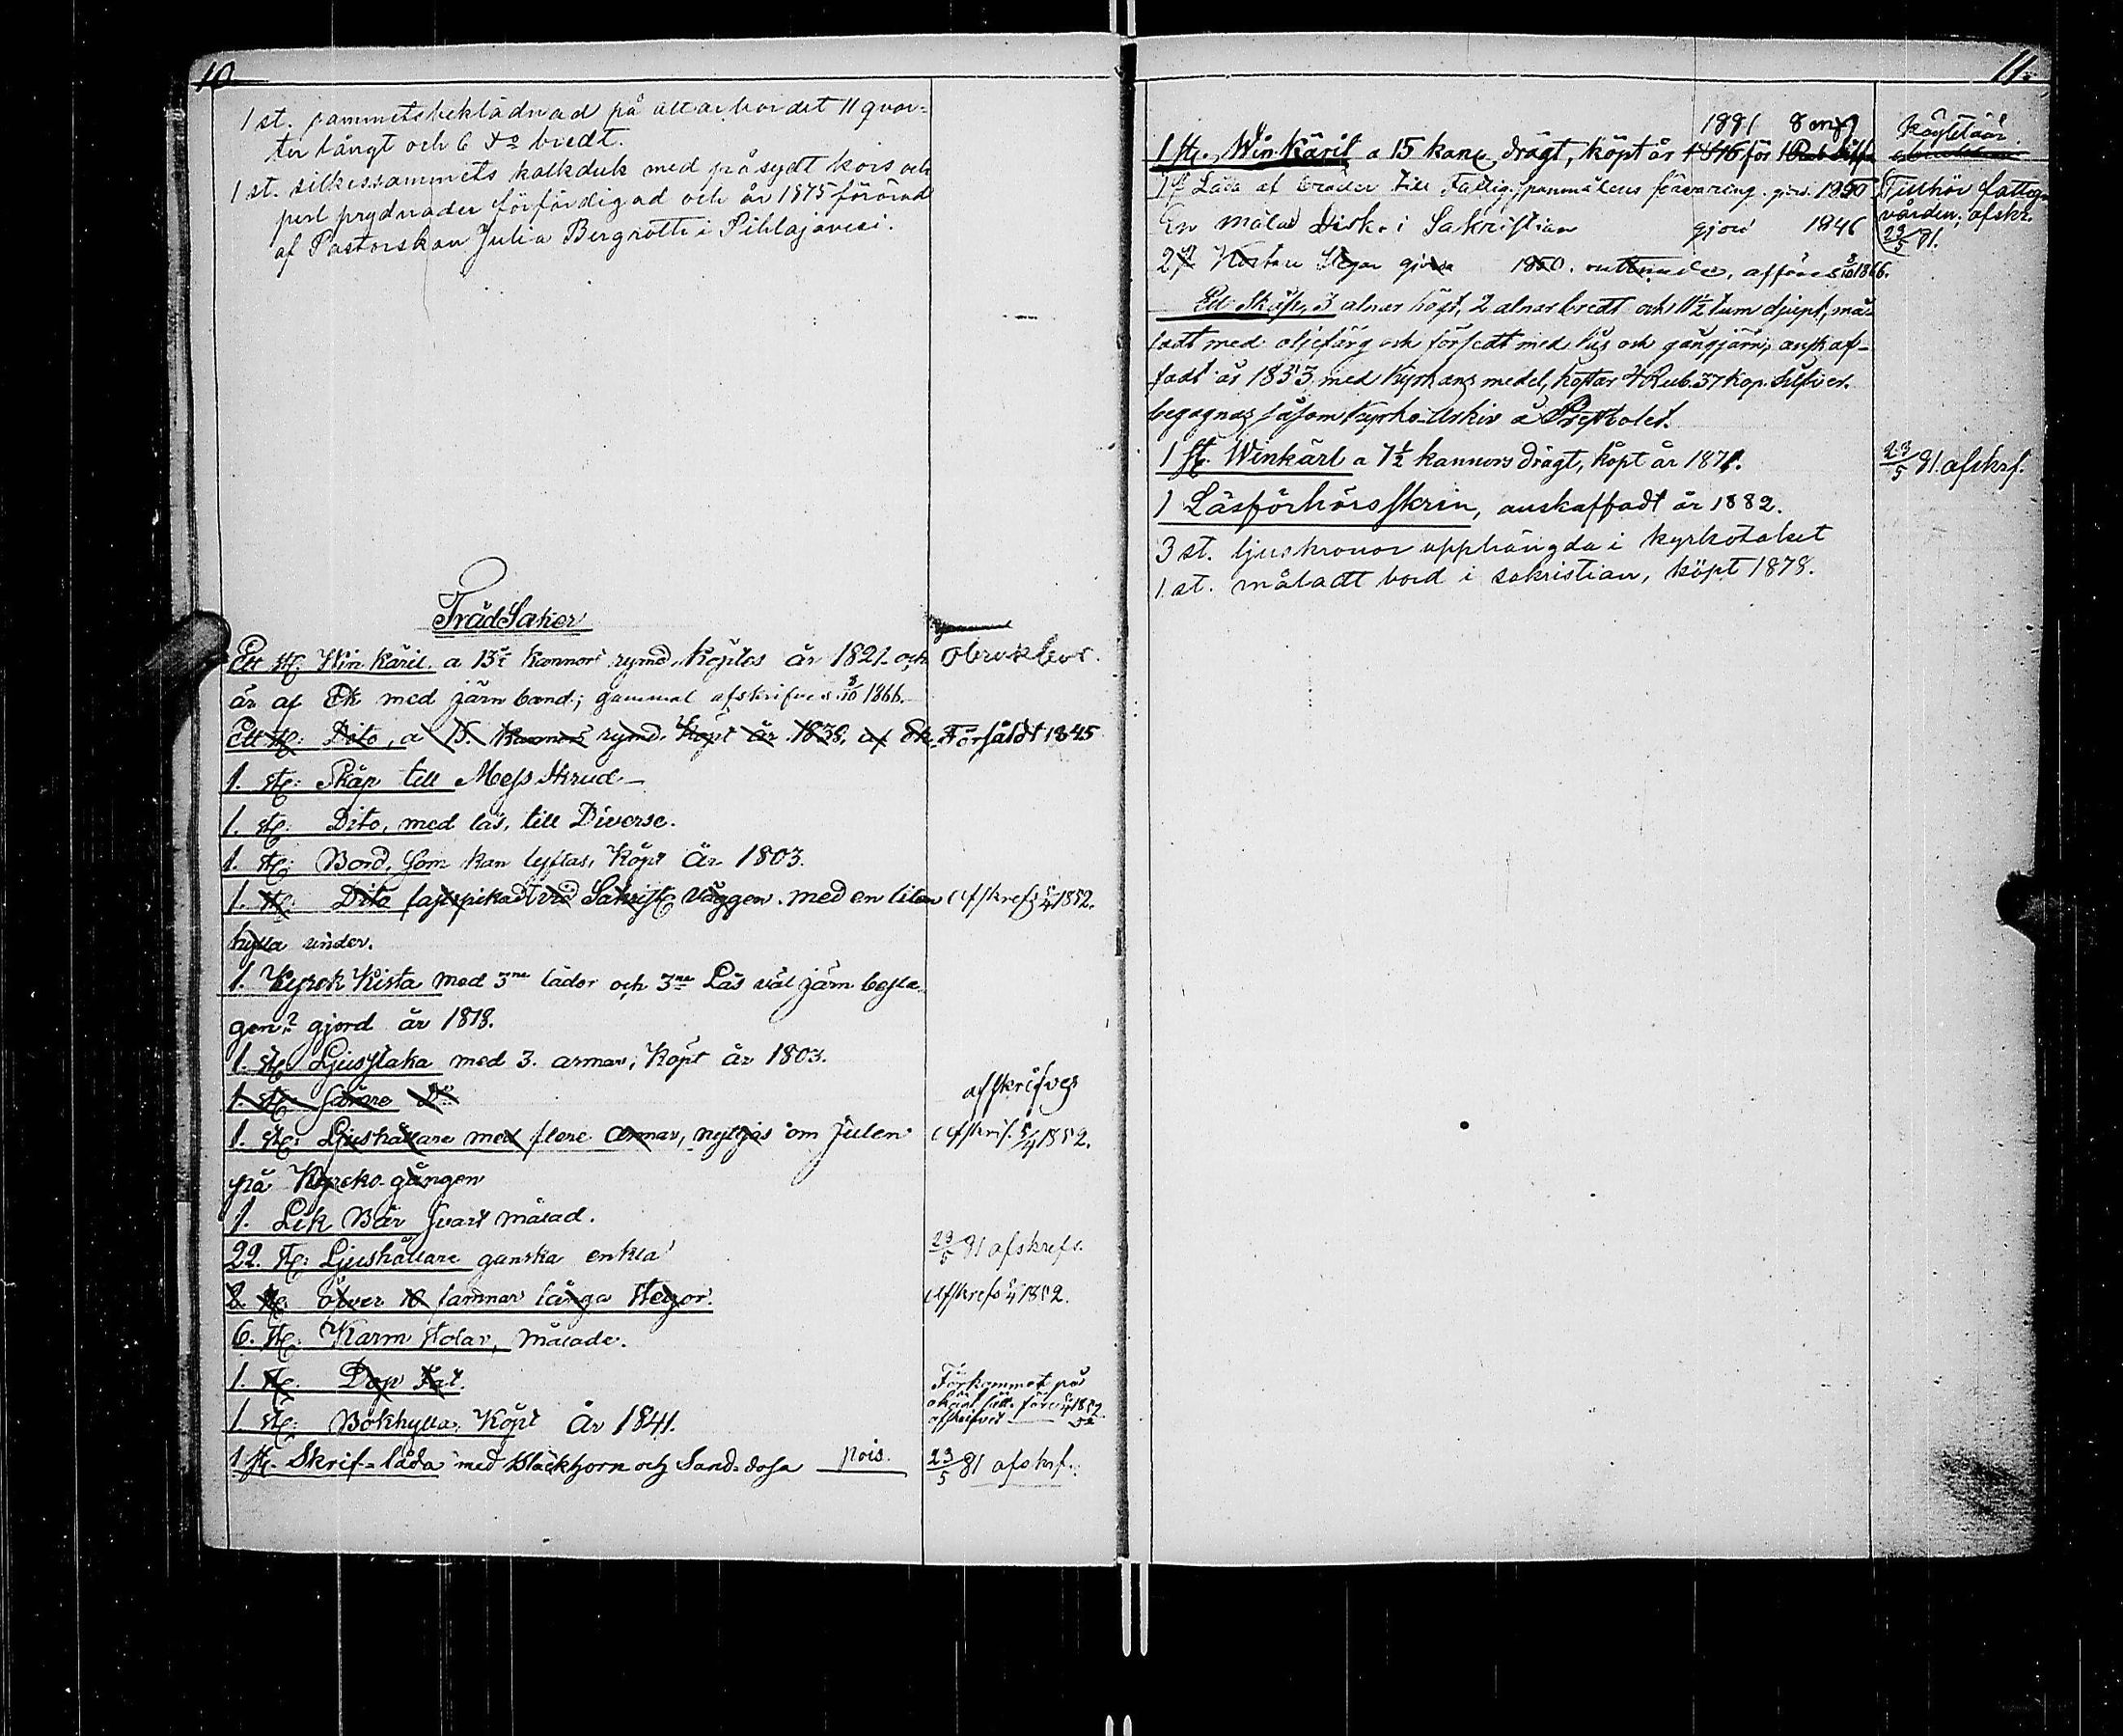 10.
1 st. sammetsbeklädnad på altarbordet 11 qvar-
ter långt och 6 do bredt.
1 st. silkessammets kalkduk med påsydt kors och
perl prydnader förfärdigad och år 1875 förärad
af Pastorskan Julia Bergroth i Pihlajavesi.
Träd Saker
Ett st: Win Käril a 13½ Kannors rymd, Köptes år 1821. och Obrukbar.
är af Ek med järn band; gammal afskrifves 8/10 1866.
Ett st: Dito, a 15. Kannors rymd. Köpt år 1838. af Ek. Försåldt 1845
1. st: Skåp till Mess Skrud
1. st: Dito, med lås, till Diverse.
1. st: Bord, som kan lyftas, Köpt År 1803.
1. st: Dito fastspikadt vid Sakrist: väggen. med en liten Afskrefs 5/4 1852.
hylla under.
1. Kyrck Kista med 3ne lådor och 3ne Lås väl järn besla-
gen? gjord år 1818.
1. st: Ljusstaka med 3. armar, Köpt År 1803.
1. st: Sämre Do afskrifves
1. st: Ljushållare med flere armar, nyttjas om Julen Afskrif. 5/4 1852.
på Kyrcko gången
1. Lik Bår svart målad.
22. st: Ljushållare ganska enkla 23/5 81 afskrefs.
2 st: öfver 10 famnar långa Stegor. Afskrefs 5/4 1852.
6. st: Karm stolar, målade.
1. st: Dop Fat. Förkommet på
okänt sätt före 5/4 1852
afskrifvet
1. st: Bokhylla, Köpt År 1841.
1 st. Skrif-låda med Bläckhorn och Sand-dosa pois. 23/5 81 afskrf.
11.
1891 8 mg
1 st. Win Käril a 15 kanrs drägt, köpt år 1846 för 1 Rub Silfr
1 st Låda af bräder till Fattig spanmålens förvaring. gjord 1850 Tillhör fattig-
vården; afskr.
23/5 81.
En målad Disk i Sakristian gjord 1846
2 st Kostare Stegar gjorda 1850. ruttnade, afföres 8/10 1866.
Ett Skåp, 3 alnar högt, 2 alnar bredt och 11½ tum djupt, må-
ladt med oljefärg och försedt med lås och gångjärn, anskaf-
fadt år 1853 med Kyrkans medel, kostar 4 Rub. 37 kop. Silfver.
begagnas såsom Kyrko-Arkiv å Prestbolet.
1 st. Winkärl a 7½ kannors drägt, köpt år 1871. 23/5 81. afskrf.
1 Läsförhörsskrin, anskaffadt år 1882.
3 st. ljuskronor upphängda i kyrkotaket
1. st. måladt bord i sakristian, köpt 1878.